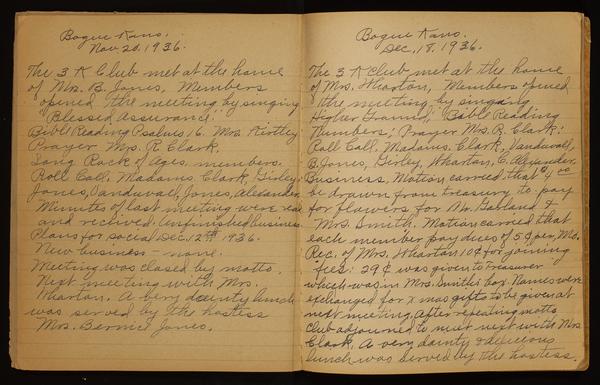 Bogue Kans.
Nov. 20, 1936.
The 3 K Club met at the home
of Mrs. B. Jones, Members
opened the meeting by singing
"Blessed Assurance".
Bible Reading Psalms 16. Mrs Kirtley
Prayer Mrs. R Clark.
Song Rock of Ages. members.
Roll Call, Madams. Clark, Girley,
Jones, Vanduvall, Jones, Alexander
Minutes of last meeting were read
and received. Unfinished business
Plans for social Dec. 12th 1936.
New business - none.
Meeting was closed by motto.
Next meeting with Mrs.
Wharton. A very dainty lunch
was served by the hostess
Mrs. Bernice Jones.
Bogue Kans.
Dec. 18, 1936.
The 3 K Club met at the home
of Mrs. Wharton, Members opened
the meeting by singing
Higher Ground, Bible Reading
Numbers, Prayer Mrs. R. Clark.
Roll Call, Madams. Clark, Vanduvall,
B. Jones, Girley, Wharton, C. Alexander,
Business. Motion carried that $4.00
be drawn from treasury to pay
for flowers for Mr. Garland &
Mrs. Smith. Motion carried that
each member pay dues of 5¢ per, Mo.
Rec. of Mrs. Wharton 10¢ for joining
fees. 29¢ was given to treasurer
which was in Mrs. Smiths box. Names were
exchanged for Xmas gifts to be given at
next meeting, After repeating motto
Club adjourned to meet next with Mrs
Clark. A very dainty & delicious
lunch was served by the hostess.